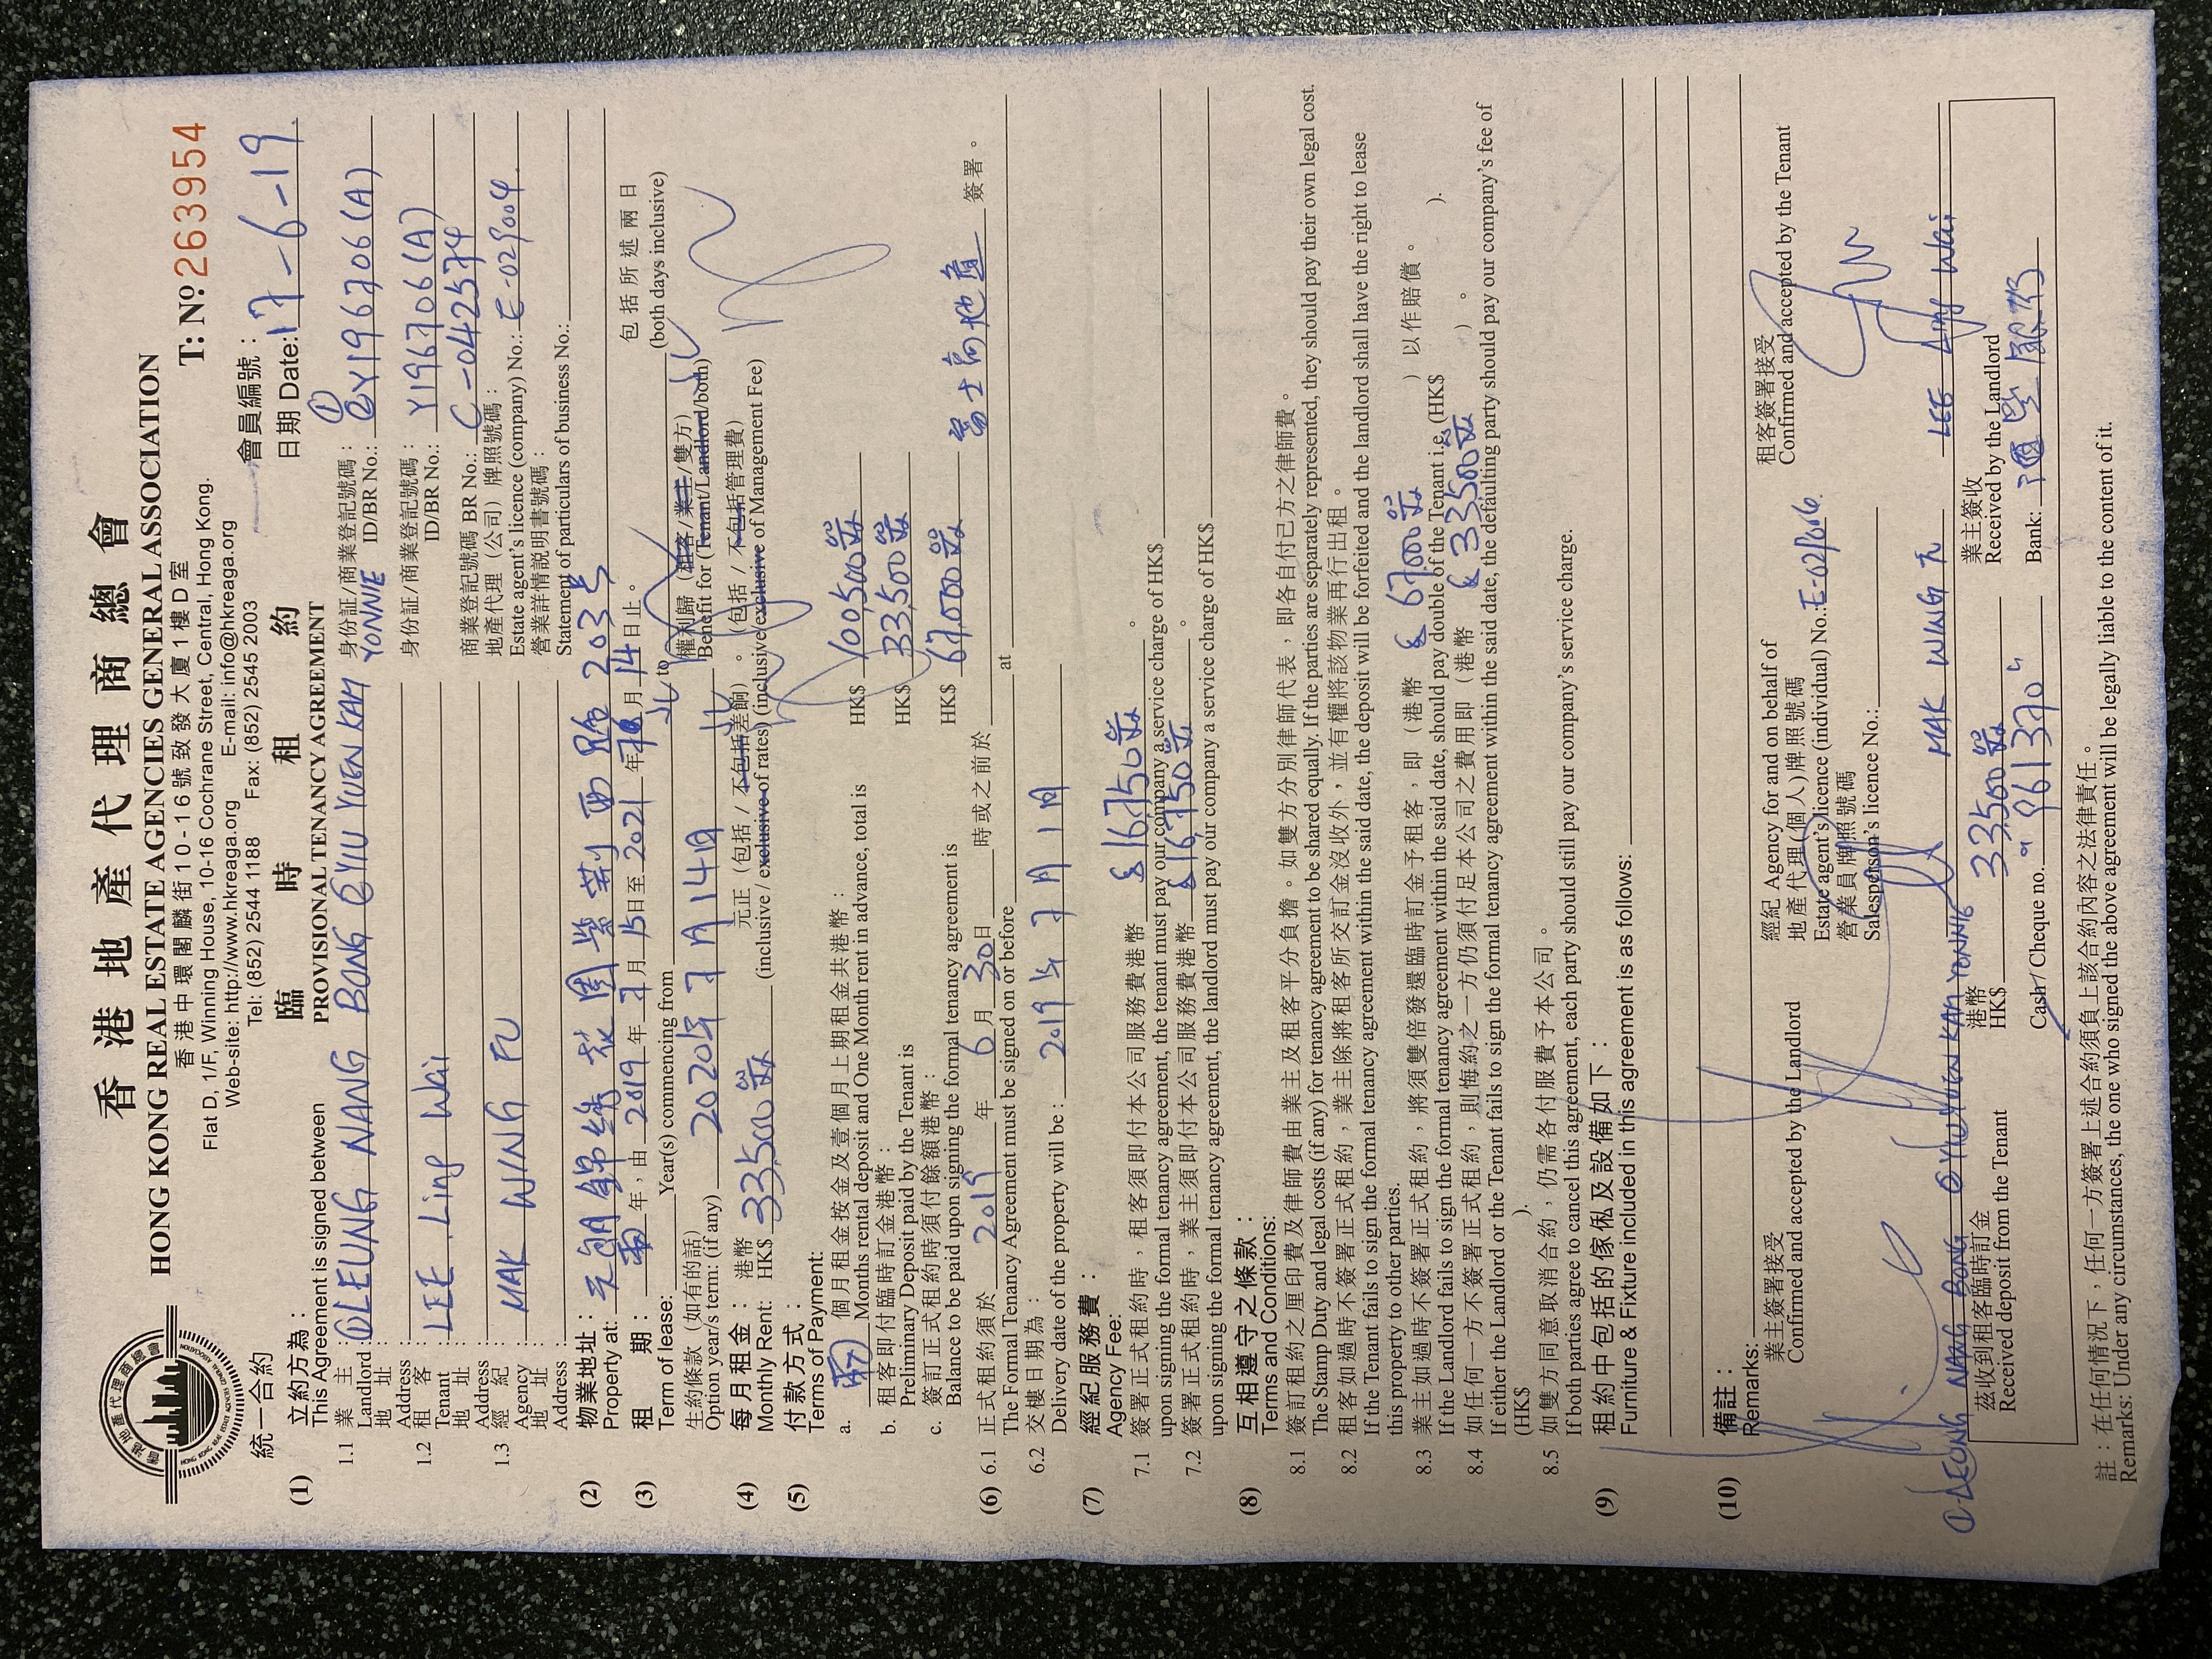 香港地產代理商總會
HONG KONG REAL ESTATE AGENCIES GENERAL ASSOCIATION
香港中環閣麟街10-16號致發大廈1樓D室
Flat D, 1/F, Winning House, 10-16 Cochrane Street, Central, Hong Kong.
Web-site: http://www.hkreaga.org E-mail: info@hkreaga.org
Tel: (852) 2544 1188 Fax: (852) 2545 2003
T: Nº 263954
統一合約
臨時租約
PROVISIONAL TENANCY AGREEMENT
會員編號：
日期 Date: 17-6-19
(1) 立約方為：
This Agreement is signed between
1.1 業主： ①LEUNG NANG BONG ②YIU YUEN KAM YONNIE 身份証/商業登記號碼： ①
Landlord ID/BR No.: ②Y196706(A)
地址：
Address
1.2 租客： LEE Ling Wai 身份証/商業登記號碼： Y196706(A)
Tenant ID/BR No.:
地址：
Address
1.3 經紀： MAK WING FU 商業登記號碼 BR No.: C-042574
Agency 地產代理（公司）牌照號碼：
Estate agent's licence (company) No.: E-029004
地址： 營業詳情説明書號碼：
Address Statement of particulars of business No.:
(2) 物業地址： 元朗錦綉花園紫荆西路203号
Property at:
(3) 租期： 兩 年，由 2019 年 7 月 15 日至 2021 年 7 月 14 日止。 包括所述兩日
Term of lease: Year(s) commencing from to (both days inclusive)
生約條款（如有的話） 權利歸（租客/業主/雙方）
Option year/s term: (if any) 2020年7月14日 Benefit for (Tenant/Landlord/both)
(4) 每月租金： 港幣 元正（包括/不包括差餉）。（包括/不包括管理費）
Monthly Rent: HK$ 33,500 (inclusive / exclusive of rates) (inclusive/exclusive of Management Fee)
(5) 付款方式：
Terms of Payment:
a. 兩 個月租金按金及壹個月上期租金共港幣：
Months rental deposit and One Month rent in advance, total is HK$ 100,500
b. 租客即付臨時訂金港幣：
Preliminary Deposit paid by the Tenant is HK$ 33,500
c. 簽訂正式租約時須付餘額港幣：
Balance to be paid upon signing the formal tenancy agreement is HK$ 67,000
(6) 6.1 正式租約須於 2019 年 6 月 30 日 時或之前於 富士高地產 簽署。
The Formal Tenancy Agreement must be signed on or before at
6.2 交樓日期為：
Delivery date of the property will be: 2019年7月1日
(7) 經紀服務費：
Agency Fee:
7.1 簽署正式租約時，租客須即付本公司服務費港幣 $16,750 。
upon signing the formal tenancy agreement, the tenant must pay our company a service charge of HK$
7.2 簽署正式租約時，業主須即付本公司服務費港幣 $16,750 。
upon signing the formal tenancy agreement, the landlord must pay our company a service charge of HK$
(8) 互相遵守之條款：
Terms and Conditions:
8.1 簽訂租約之厘印費及律師費由業主及租客平分負擔。如雙方分別律師代表，即各自付己方之律師費。
The Stamp Duty and legal costs (if any) for tenancy agreement to be shared equally. If the parties are separately represented, they should pay their own legal cost.
8.2 租客如過時不簽署正式租約，業主除將租客所交訂金沒收外，並有權將該物業再行出租。
If the Tenant fails to sign the formal tenancy agreement within the said date, the deposit will be forfeited and the landlord shall have the right to lease
this property to other parties.
8.3 業主如過時不簽署正式租約，將須雙倍發還臨時訂金予租客，即（港幣 $67,000 ）以作賠償。
If the Landlord fails to sign the formal tenancy agreement within the said date, should pay double of the Tenant i.e. (HK$ ).
8.4 如任何一方不簽署正式租約，則悔約之一方仍須付足本公司之費用即（港幣 $33,500 ）。
If either the Landlord or the Tenant fails to sign the formal tenancy agreement within the said date, the defaulting party should pay our company's fee of
(HK$ ).
8.5 如雙方同意取消合約，仍需各付服費予本公司。
If both parties agree to cancel this agreement, each party should still pay our company's service charge.
(9) 租約中包括的傢俬及設備如下：
Furniture & Fixture included in this agreement is as follows:
(10) 備註：
Remarks:
業主簽署接受
Confirmed and accepted by the Landlord
經紀 Agency for and on behalf of
地產代理(個人)牌照號碼
Estate agent's licence (individual) No.:
營業員牌照號碼
Salesperson's licence No.:
租客簽署接受
Confirmed and accepted by the Tenant
①LEUNG NANG BONG ②YIU YUEN KAM YONNIE MAK WING FU LEE Ling Wai
茲收到租客臨時訂金 港幣 業主簽收
Received deposit from the Tenant HK$ 33,500 Received by the Landlord
Cash / Cheque no. 961370 Bank:
註：在任何情況下，任何一方簽署上述合約須負上該合約內容之法律責任。
Remarks: Under any circumstances, the one who signed the above agreement will be legally liable to the content of it.